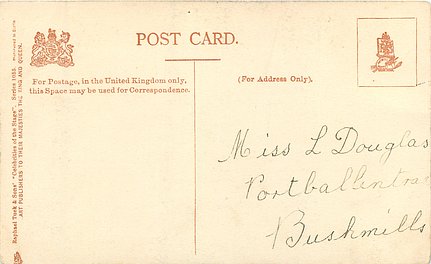 POST CARD.
For Postage, in the United Kingdom only,
this Space may be used for Correspondence.
(For Address Only).
Miss L Douglas
Portballintrae
Bushmills
Raphael Tuck & Sons' "Celebrities of the Stage". Series
ART PUBLISHERS TO THEIR MAJESTIES THE KING AND QUEEN.